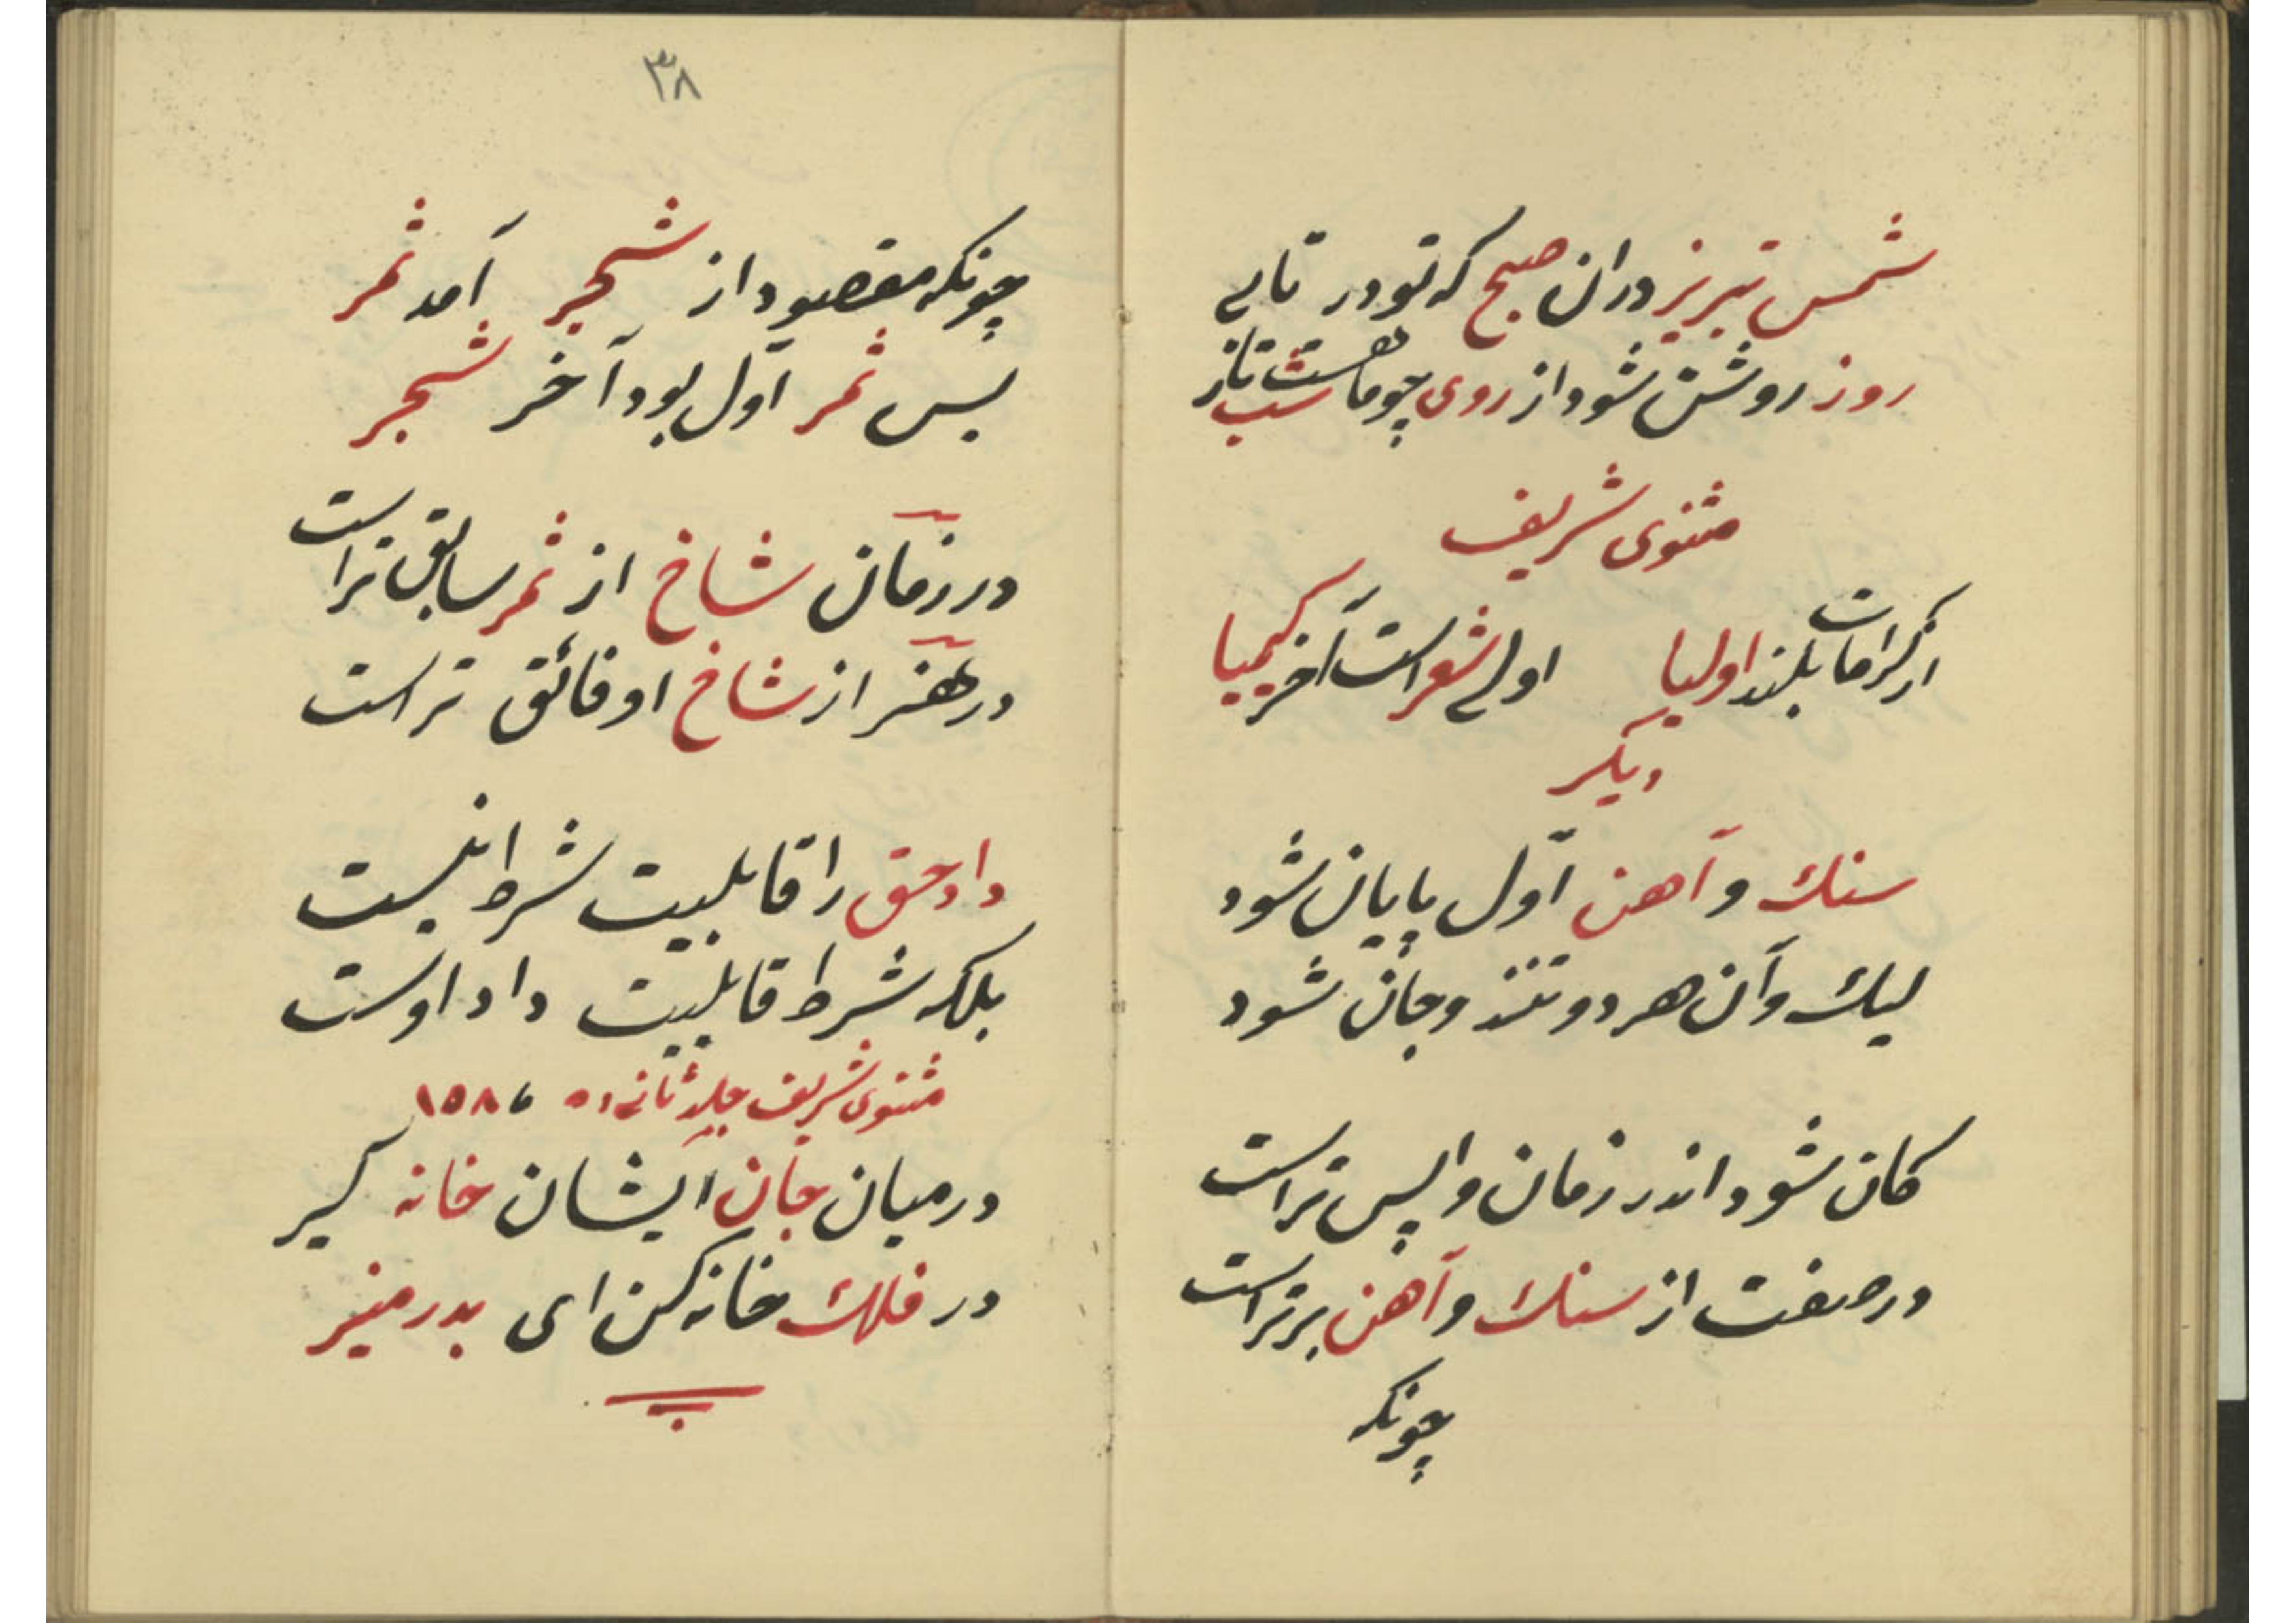 شمس تبریز دران صبح که تو در تابی
روز روشن شود از روی چو ماهت شب تار
مثنوی شریف
از کرامات بلند اولیا اولی شعر است آخر کیمیا
دیکر
سنك و آهن اوّل پایان شود
لیك و آن هر دو تنند و جان شود
کان شود اندر زمان واپس تر است
در صفت از سنك و آهن برتر است
چونکه
۳۸
چونکه مقصود از شجر آمد ثمر
بس ثمر اوّل بود آخر شجر
در زمان شاخ از ثمر سابق تر است
در هنر از شاخ او فائق تر است
داد حق را قابلیت شرط نیست
بلکه شرط قابلیت داد اوست
مثنوی شریف جلد ثانی
در میان جان ایشان خانه کیر
در فلك خانه کن ای بدر منیر